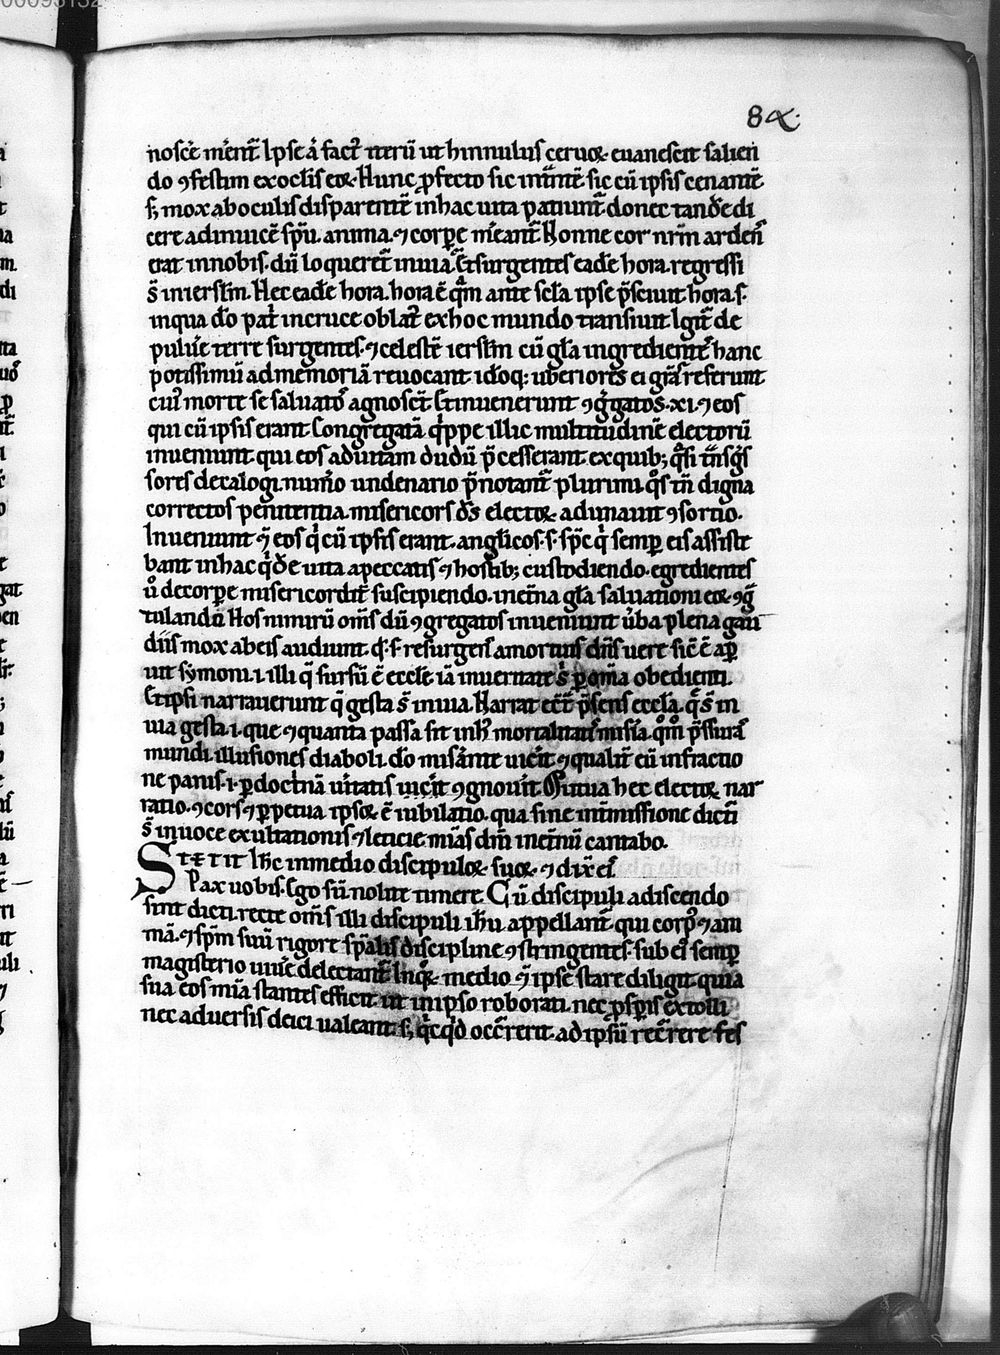 00093132
84.
noscer̄ mer̄ent̄ Ipse a᷑ fact᷒ iterū ut hinnulus ceruoꝝ euanescit salien
do ꝯfestim ex oclis eoꝝ. Hunc ꝓfecto sic inuitant̄ sic cū ipsis cenant̄
s; mox ab oculis disparent̄ in hac uita patiunt̄. donec tande di
cere ad inuicē spū. anima. ⁊ corpe mereant̄ Nonne cor nr̄m ardens
erat in nobis. dū loqueret̄ in uia. Et surgentes eade hora. regressi
s̄ in ierslm̄. Hec eade hora. hora ē
inqua do pat̄ in cruce oblat᷒ ex hoc mundo transiuit de
puluere terre surgentes. ⁊ celestē ierslm̄ cū gl̄a ingredientes hanc
potissimū ad memoriā reuocant. idoq; uberiores ei grās referunt
cui᷒ morte se saluatos agnoscūt Et inuenerunt ꝯg̃gatos .xi. ⁊ eos
qui cū ipsis erant Congregatā quippe illic multitudinē electorū
inueniunt qui eos ad uitam dudū p̄cesserant. ex quib; q̄si
sores decalogi numero undenario p̄notant̄ plurimi. quos tn̄ digna
correctos penitentia. misericors ds̄ electoꝝ adunauit ꝯsortio.
Inueniunt ⁊ eos qi cū ipsis erant. anglicos .s. spc̄ qi semp eis assiste
bant in hac qide uita a peccatis ⁊ hostib; custodiendo. egredientes
u᷒o de corpe misericordit̄ suscipiendo. in etna gl̄a saluationi eoꝝ ꝯg̃
tulando. Hos nimirū oms̄ dū ꝯgregatos inueniunt uerba plena gau
diis mox ab eis audiunt. qd .s. resurgens a mortuis dns̄ uere sic̄ ē ap
uit symoni .i. illi qi sursū ē eccle. iā inuenitur s̄ p oīa obedienti.
Et ipsi narrauerunt q̄ gesta s̄ in uia. Narrat p̄sens eccl̄a. q̄ s̄ in
uia gesta .i. que ⁊ quanta passa sit in h᷒ mortalitatis miseria. p̄ssuras
mundi. illusiones diaboli. do miserante uicit ⁊ qualit̄ eū in fractio
ne panis .i. p doctrinā ueritatis uicerit ꝯgnouit. Mutua hec electoꝝ nar
ratio. ꝯcors ⁊ ppetua ipsoꝝ ē iubilatio. qua sine intmissione dicti
s̄ in uoce exultationis ⁊ leticie mias dni in etnū cantabo.
STETIT Ihc in medio discipuloꝝ suoꝝ ⁊ dix̄ eis
Pax uobis. Ego sū nolite timere. Cū discipuli a discendo
sint dicti. recte oms̄ illi discipuli ihu appellant̄. qui corp᷒ ⁊ ani
mā. ⁊ spm̄ suū rigore sp̄alis discipline ꝯstringentes. sub ei᷒ semp
magisterio uiuere delectant̄. In quoꝝ medio ⁊ ipse stare diligit. quia
sua eos mia stantes efficit. ut in ipso roborati. nec psperis extolli
nec aduersis deici ualeant. s; qicqid occ̄rerit. ad ipsū rec̄rere fes